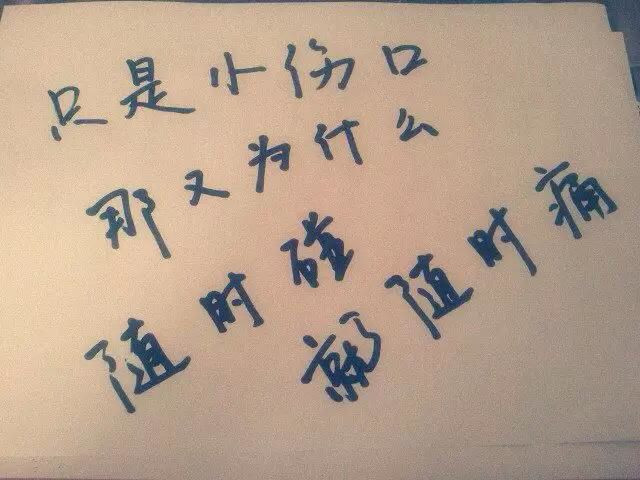 只是小伤口
那又为什么
随时碰
就随时痛